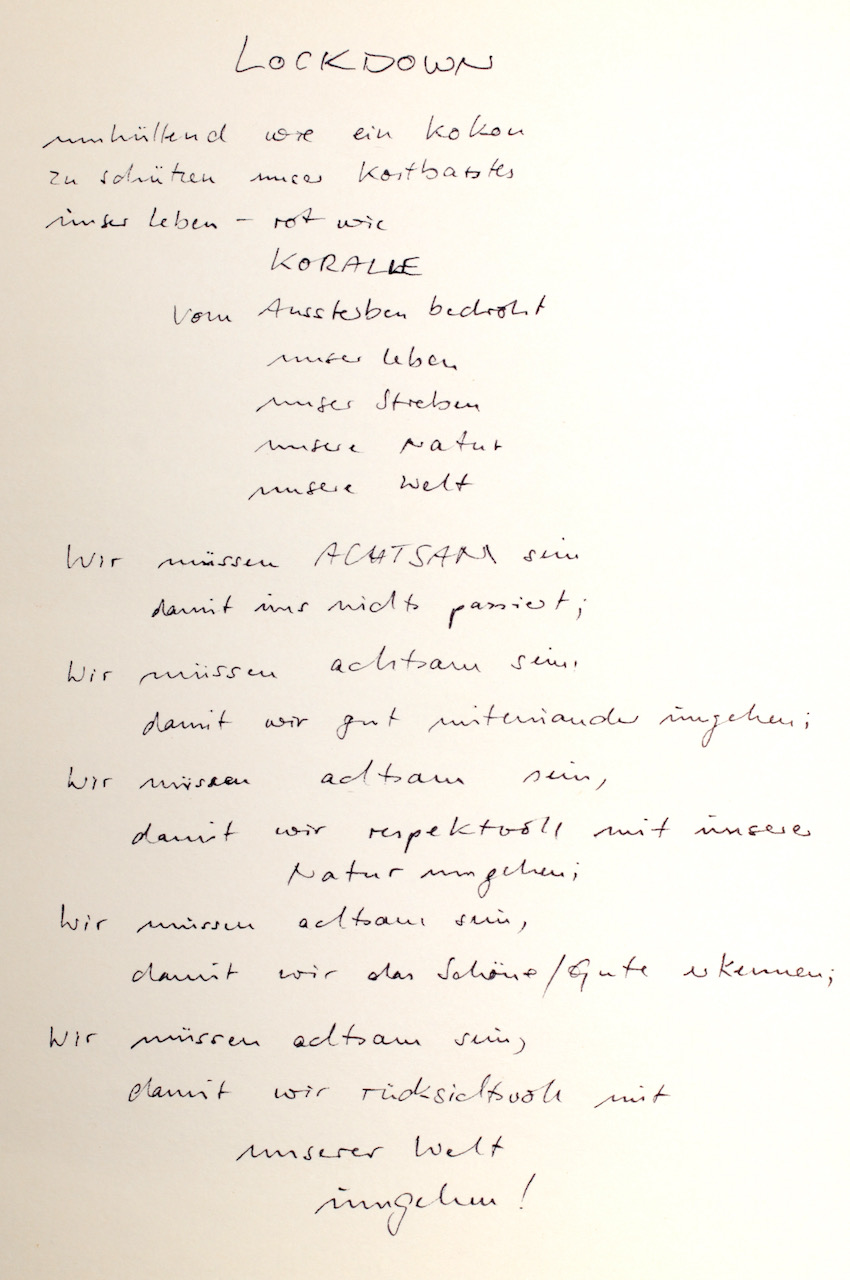 LOCKDOWN
umhüllend wie ein Kokon
zu schützen unser Kostbarstes
unser Leben – rot wie
KORALLE
Vom Aussterben bedroht
unser Leben
unser Streben
unsere Natur
unsere Welt
Wir müssen ACHTSAM sein
damit uns nichts passiert;
Wir müssen achtsam sein,
damit wir gut miteinander umgehen;
Wir müssen achtsam sein,
damit wir respektvoll mit unserer
Natur umgehen;
Wir müssen achtsam sein,
damit wir das Schöne/Gute erkennen;
Wir müssen achtsam sein,
damit wir rücksichtsvoll mit
unserer Welt
umgehen!